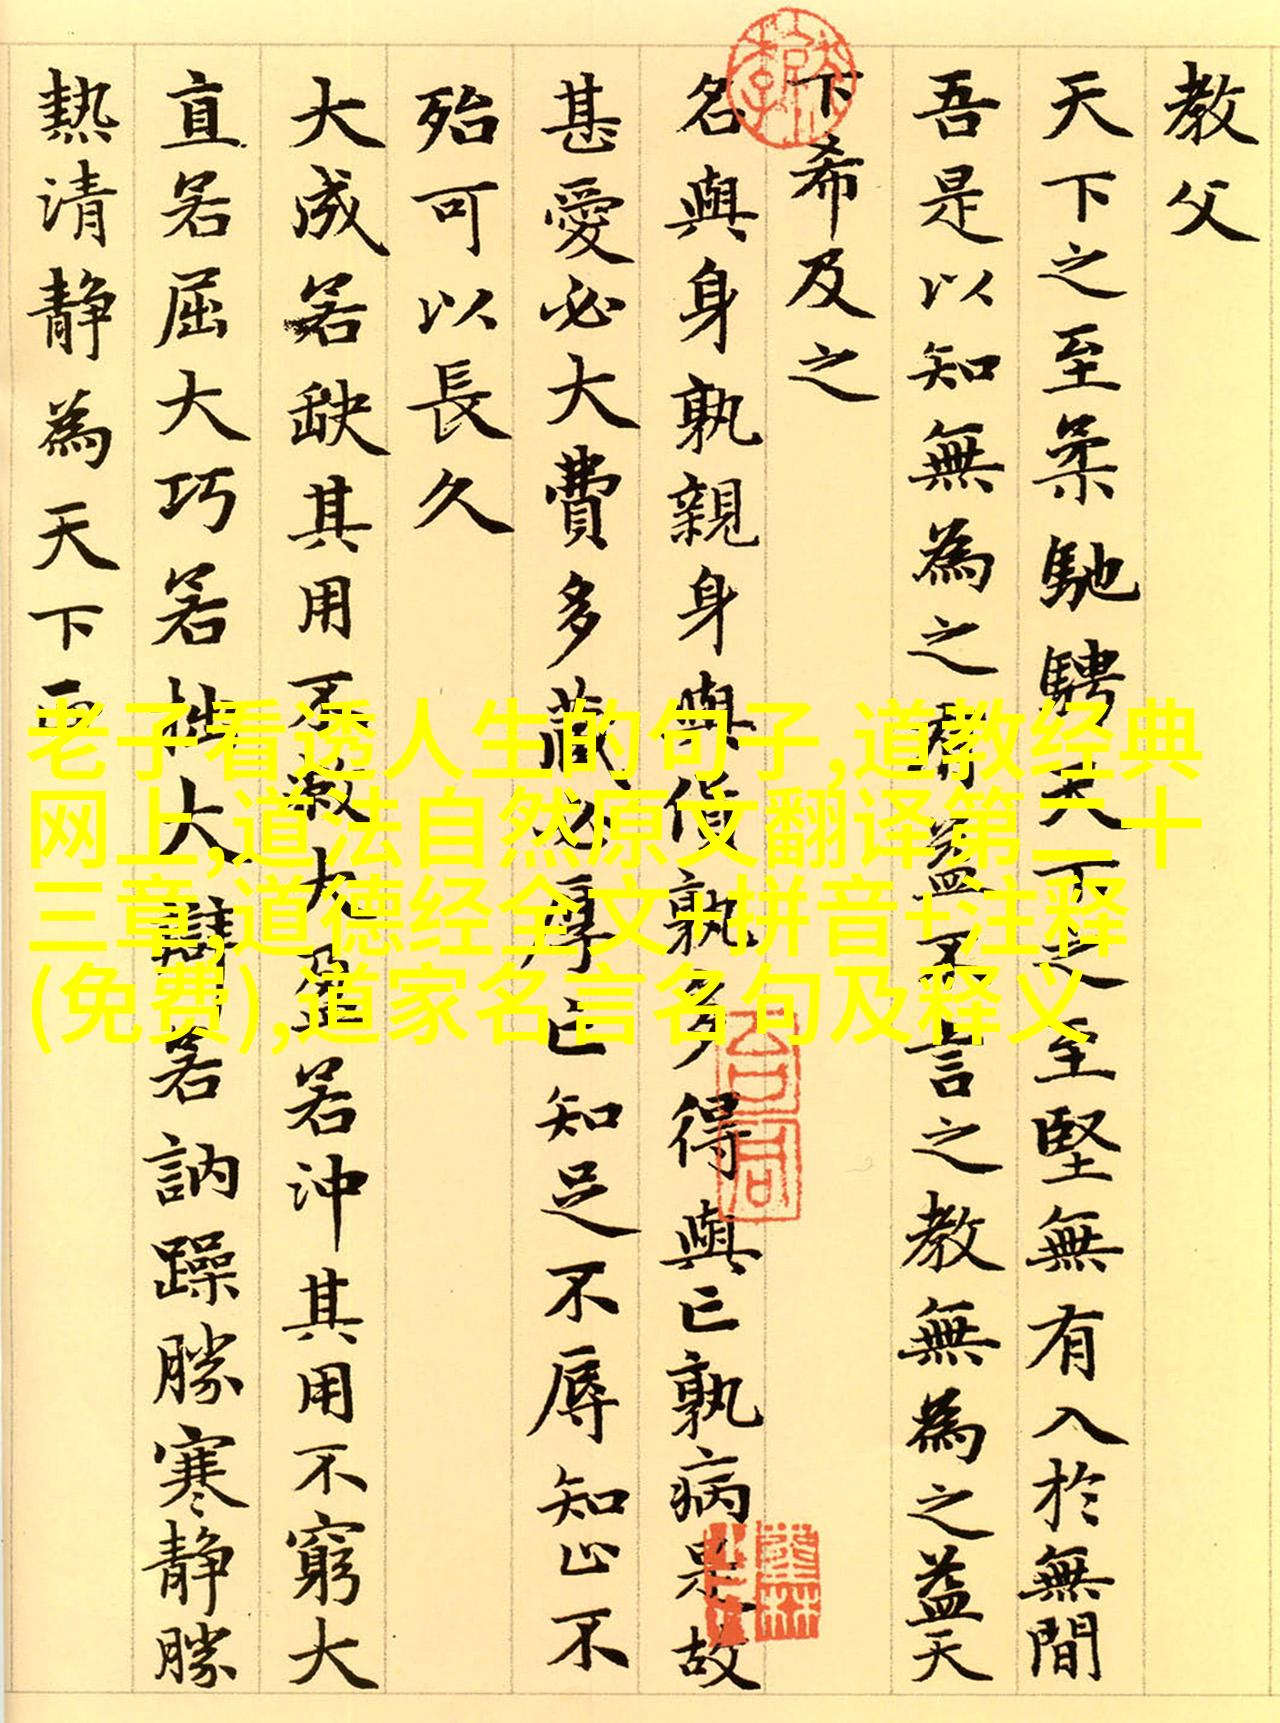 教父
天下之至柔馳騁天下之至堅無有入於無間
吾是以知無為之有益不言之教無為之益天
下希及之
名與身孰親身與貨孰多得與亡孰病是故
甚愛必大費多藏必厚亡知足不辱知止不
殆可以長久
大成若缺其用不敝大盈若沖其用不窮大
直若屈大巧若拙大辯若訥躁勝寒靜勝
熱清靜為天下正
老子看透人生的句子,道教经典
网上,道法自然原文翻译第二十
三章,道德经全文+拼音+注释
(免费),道家名言名句及释义